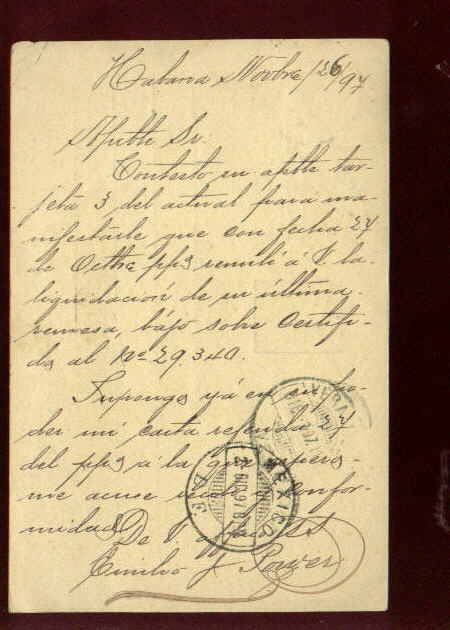 Habana Novbre/26/97
Apble Sr.
Contesto su apble tar-
jeta 3 del actual para ma-
nifestarle que con fecha 27
de Octbre ppº remití á V. la
liquidación de su última
remesa, bájo sobre Certifi-
do al Nº 29.340.
Supongo yá en su po-
der mi carta refenda 27
del ppº á la que espero
me acuse confor-
midad.
De V.
Emilio J. Power
MEXICO
2 DIC 97
VERA